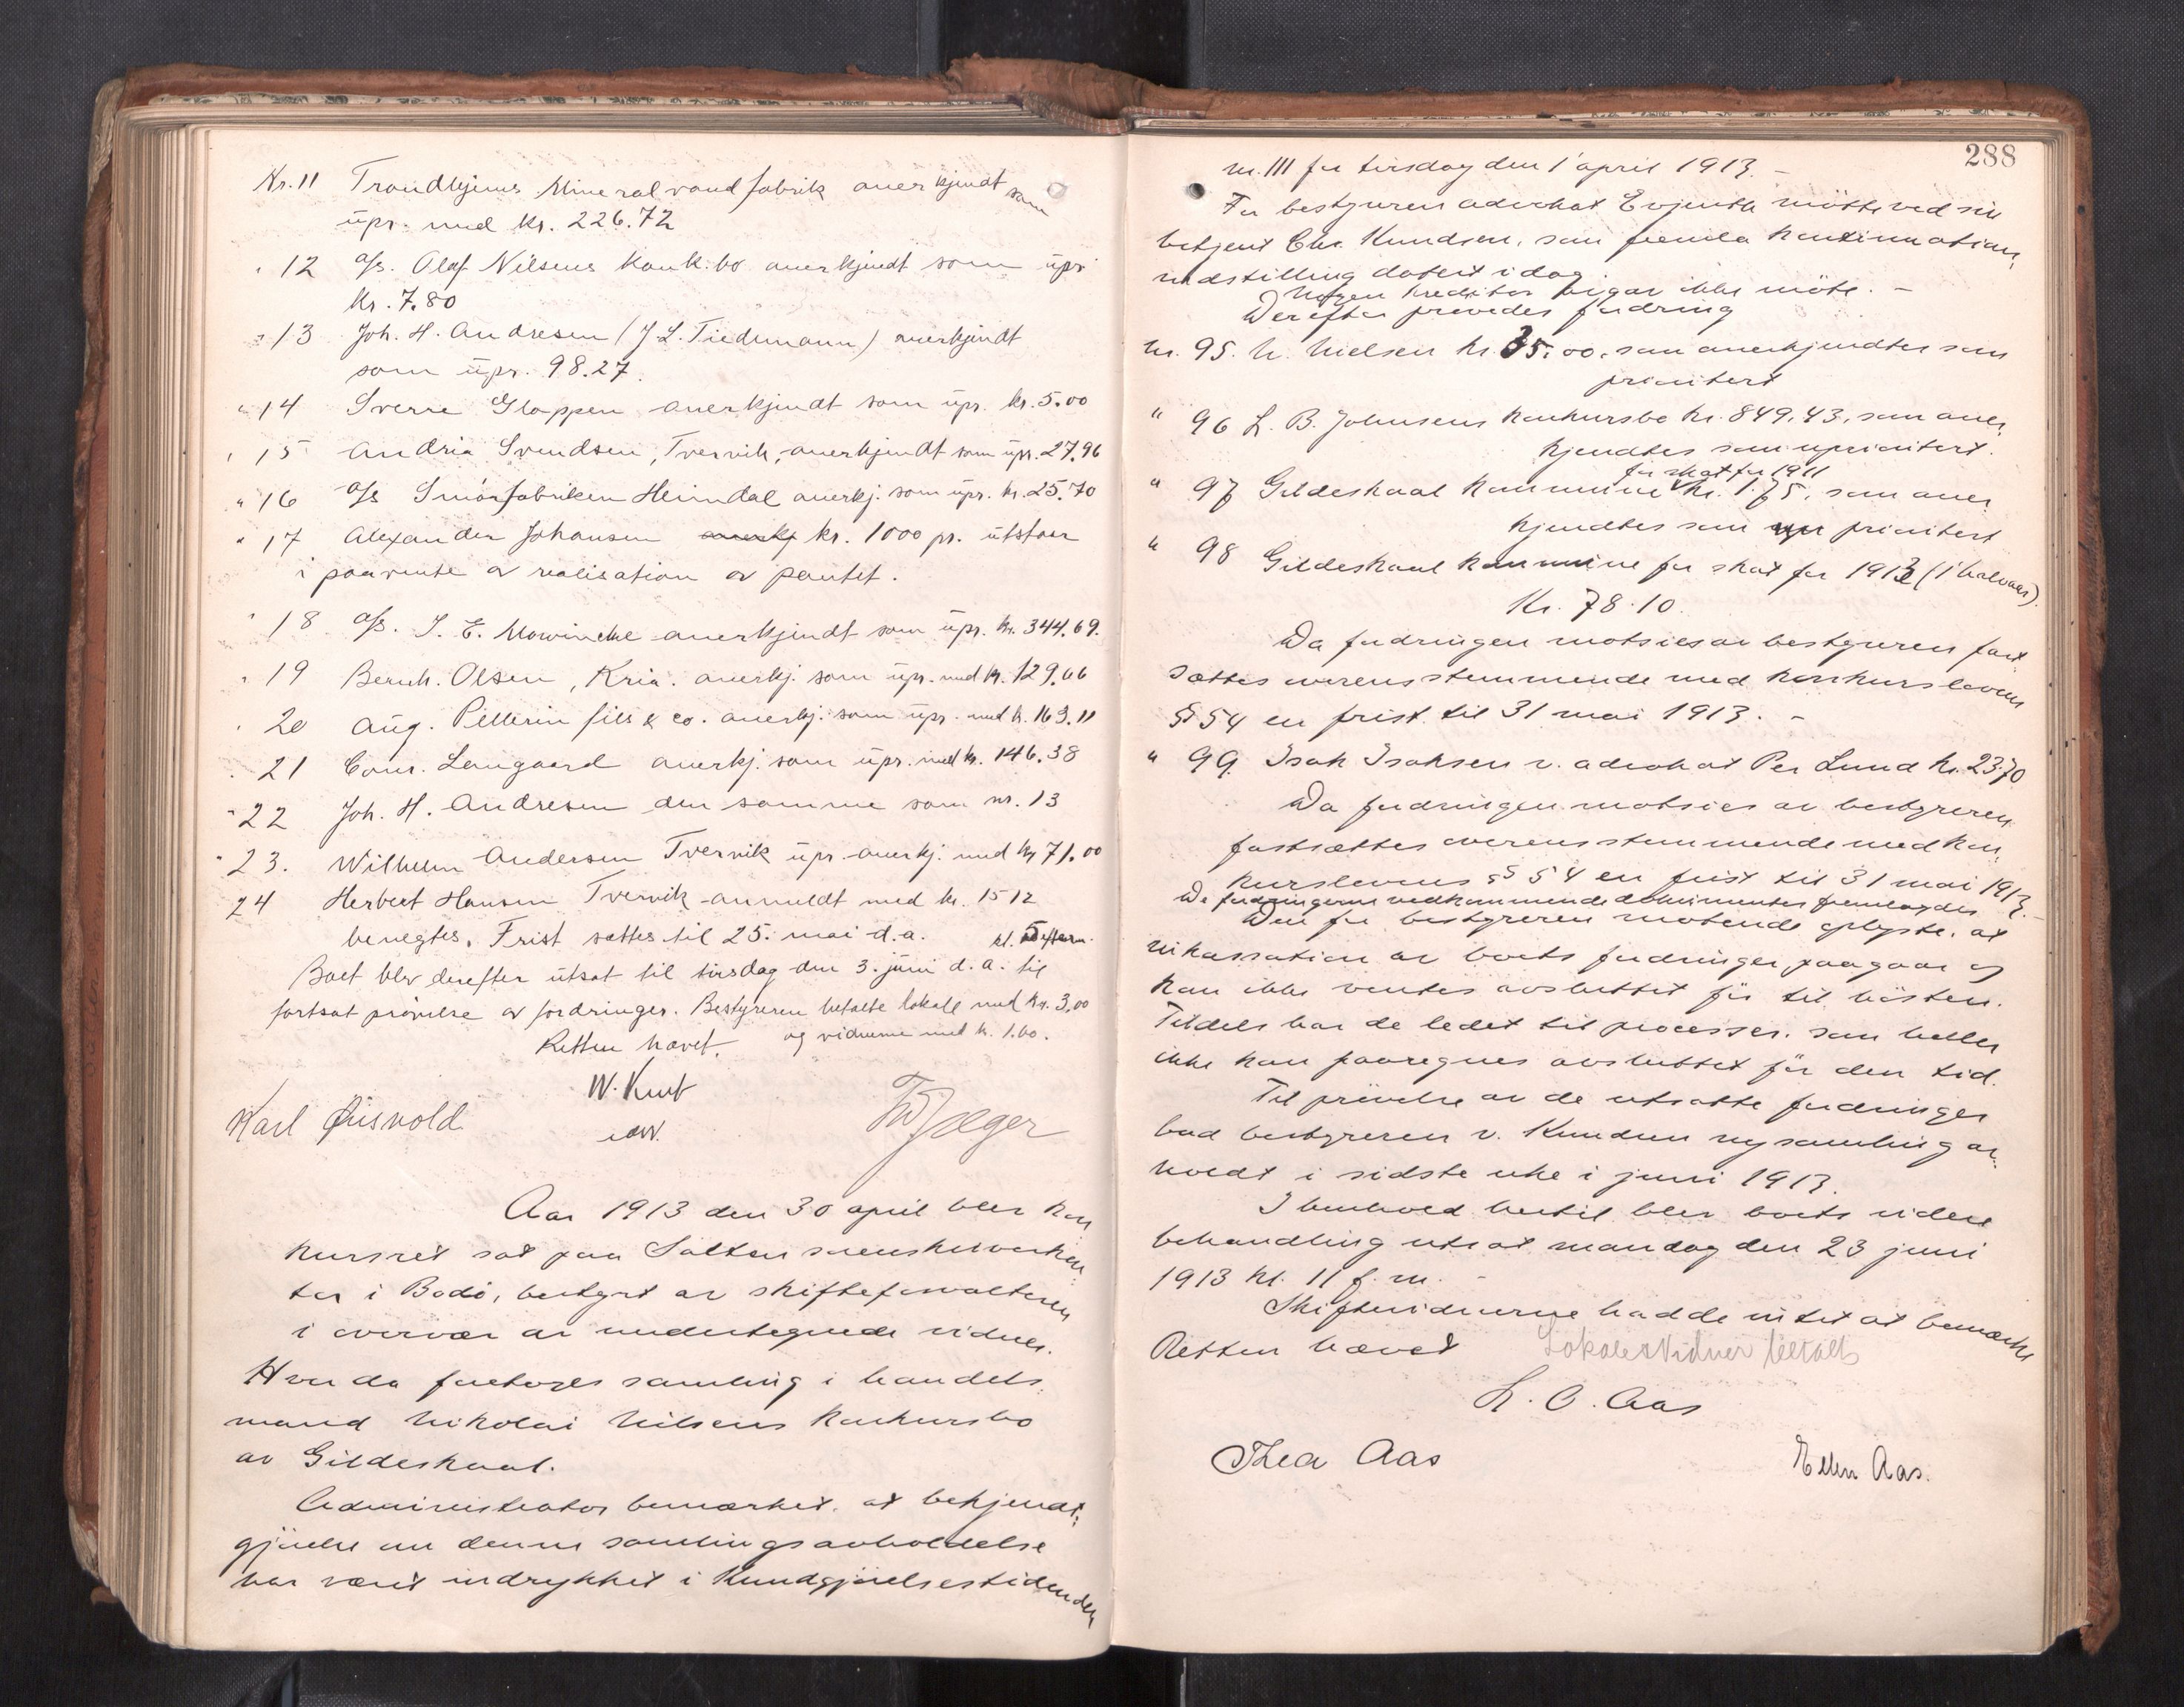 Nr. 11 Trondhjems Mineralvandfabrik anerkjendt som
üpr. med kr. 226.72
" 12 a/s. Olaf Nilsens konk.bo anerkjendt som üpr.
kr. 7.80
" 13 Joh. H. Andresen (J. L. Tiedemann) anerkjendt
som üpr. 98.27.
" 14 Sverre Gloppen anerkjendt som üpr. kr. 5.00
" 15 Andria Svendsen, Tvervik, anerkjendt som üpr. 27.96
" 16 a/s Smörfabriken Heimdal anerkj. som üpr. kr. 25.70
" 17 Alexander Johansen anerkj kr. 1000 pr. ütstaar
i paavente av realisation av pantet.
" 18 a/s. J. E. Mowinckel anerkjendt som üpr. kr. 344.69.
" 19 Bernh. Olsen, Kria. anerkj. som üpr. med kr. 129.66
" 20 Aüg. Pellerin fils & co. anerkj. som üpr. med kr. 163.11
" 21 Conr. Langaard anerkj. som üpr. med kr. 146.38
" 22 Joh. H. Andresen den samme som nr. 13
" 23. Wilhelm Andersen Tvervik üpr. anerkj. med kr 71.00
24 Herbert Hansen Tvervik anmeldt med kr. 15 12
benegtes. Frist sættes til 25. mai d.a. kl. 5 efterm.
Boet blev derefter ütsat til tirsdag den 3. jüni d.a. til
fortsat prövelse av fordringer. Bestyreren betalte lokale med kr. 3,00
Retten hævet. og vidnerne med kr. 1.60.
W. Kurt
Karl Øisvold
Aar 1913 den 30 april blev kon-
kursret sat paa Salten sorenskriverkon-
tor i Bodö, bestyrt av skifteforvalteren
i overvær av undertegnede vidner.
Hvor da foretoges samling i handels-
mand Nikolai Nilsens konkursbo
av Gildeskaal.
Administrator bemærket, at bekjendt-
gjörelse om denne samlings avholdelse
har været indrykket i Kundgjörelsestidenden
288
nr. 111 for tirsdag den 1' april 1913. -
For bestyreren advokat Evjenth mötte ved sin
betjent Chr. Knudsen, som fremla kontinuations
indstilling datert idag.
Nogen kreditor og gav ikke möte. -
Derefter prövedes fordring
nr. 95. N. Nielsen kr. 35.00, som anerkjendtes som
prioritert
" 96 L. B. Johnsens konkursbo kr. 849,43, som aner-
kjendtes som uprioritert.
for skat for 1911
" 97 Gildeskaal kommune kr. 1.75, som aner
kjendtes som prioritert
" 98 Gildeskaal kommune for skat for 1912 (1' halvaar).
Kr. 78.10.
Da fordringen motsies av bestyreren fast-
sættes overensstemmende med konkurslovens
§ 54 en frist til 31 mai 1913. -
" 99. Isak Isaksen v. advokat Per Lund kr. 23.70
Da fordringen motsies av bestyreren
fastsættes overensstemmende med kon-
kurslovens § 54 en frist til 31 mai 1913. -
De fordringerne vedkommende dokumenter fremlagdes
Den for bestyreren mötende oplyste, at
inkassation av boets fordringer paagaar og
kan ikke ventes avsluttet för til hösten.
Tildels har de ledet til processer, som heller
ikke kan paaregnes avsluttet för den tid.
Til prövelse av de utsatte fordringer
bad bestyreren v. Knudsen ny samling av-
holdt i sidste uke i juni 1913.
I henhold hertil blev boets videre
behandling utsat mandag den 23 juni
1913 kl. 11 f.m. -
Skiftevidnerne hadde intet at bemærke
Retten hævet Lokale & Vidner betalt
L. O. Aas
Thea Aas Ellen Aas.